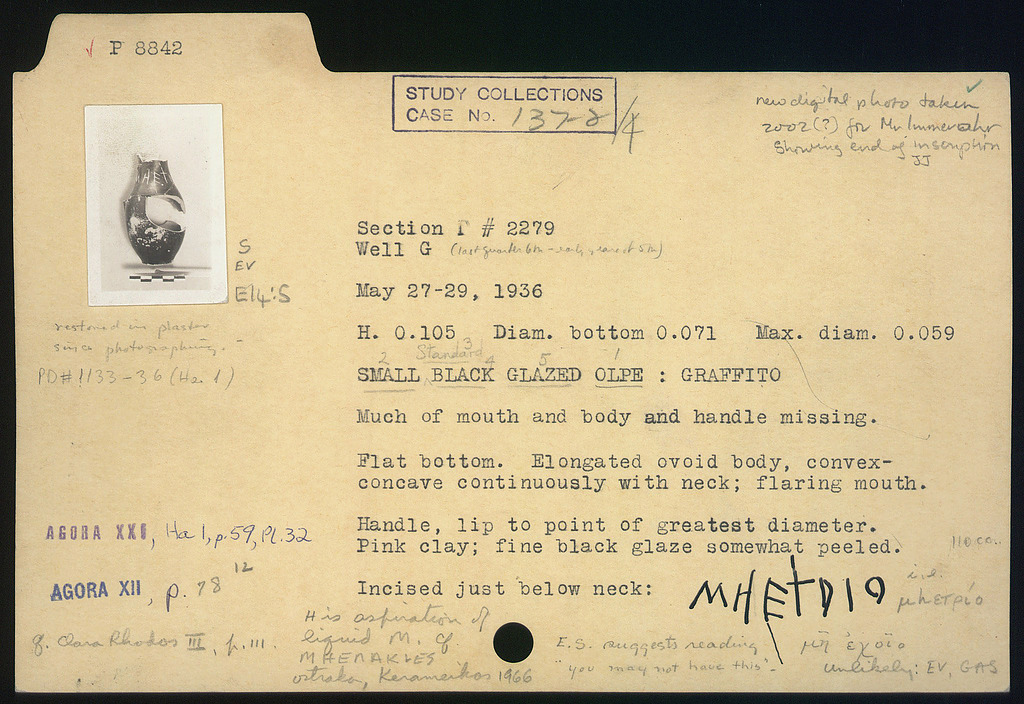 P 8842
STUDY COLLECTIONS
CASE No. 137-8/4
new digital photo taken
2002(?) for Mr Immerwahr
Showing end of inscription
JJ
ΜΗΕΤ
Section Γ # 2279
Well G (last quarter 6th - early years of 5th)
S
EV
E14:S
May 27-29, 1936
restored in plaster
since photographing. -
PD# 1133-36 (Ha. 1)
H. 0.105 Diam. bottom 0.071 Max. diam. 0.059
2 Standard 3 4 5 1
SMALL BLACK GLAZED OLPE : GRAFFITO
Much of mouth and body and handle missing.
Flat bottom. Elongated ovoid body, convex-
concave continuously with neck; flaring mouth.
Handle, lip to point of greatest diameter.
Pink clay; fine black glaze somewhat peeled.
AGORA XXI, Ha 1, p.59, Pl.32
AGORA XII, p. 78 12
Incised just below neck: ΜΗΕΤΡΙΟ
i.e.
μhετρίο
cf. Clara Rhodos III, p. 111.
H is aspiration of
liquid M. cf
MHEΡAKLES
ostraka, Kerameikos 1966
E.S. suggests reading μὴ ἐχοῖο
"you may not have this" -
unlikely: EV, GAS